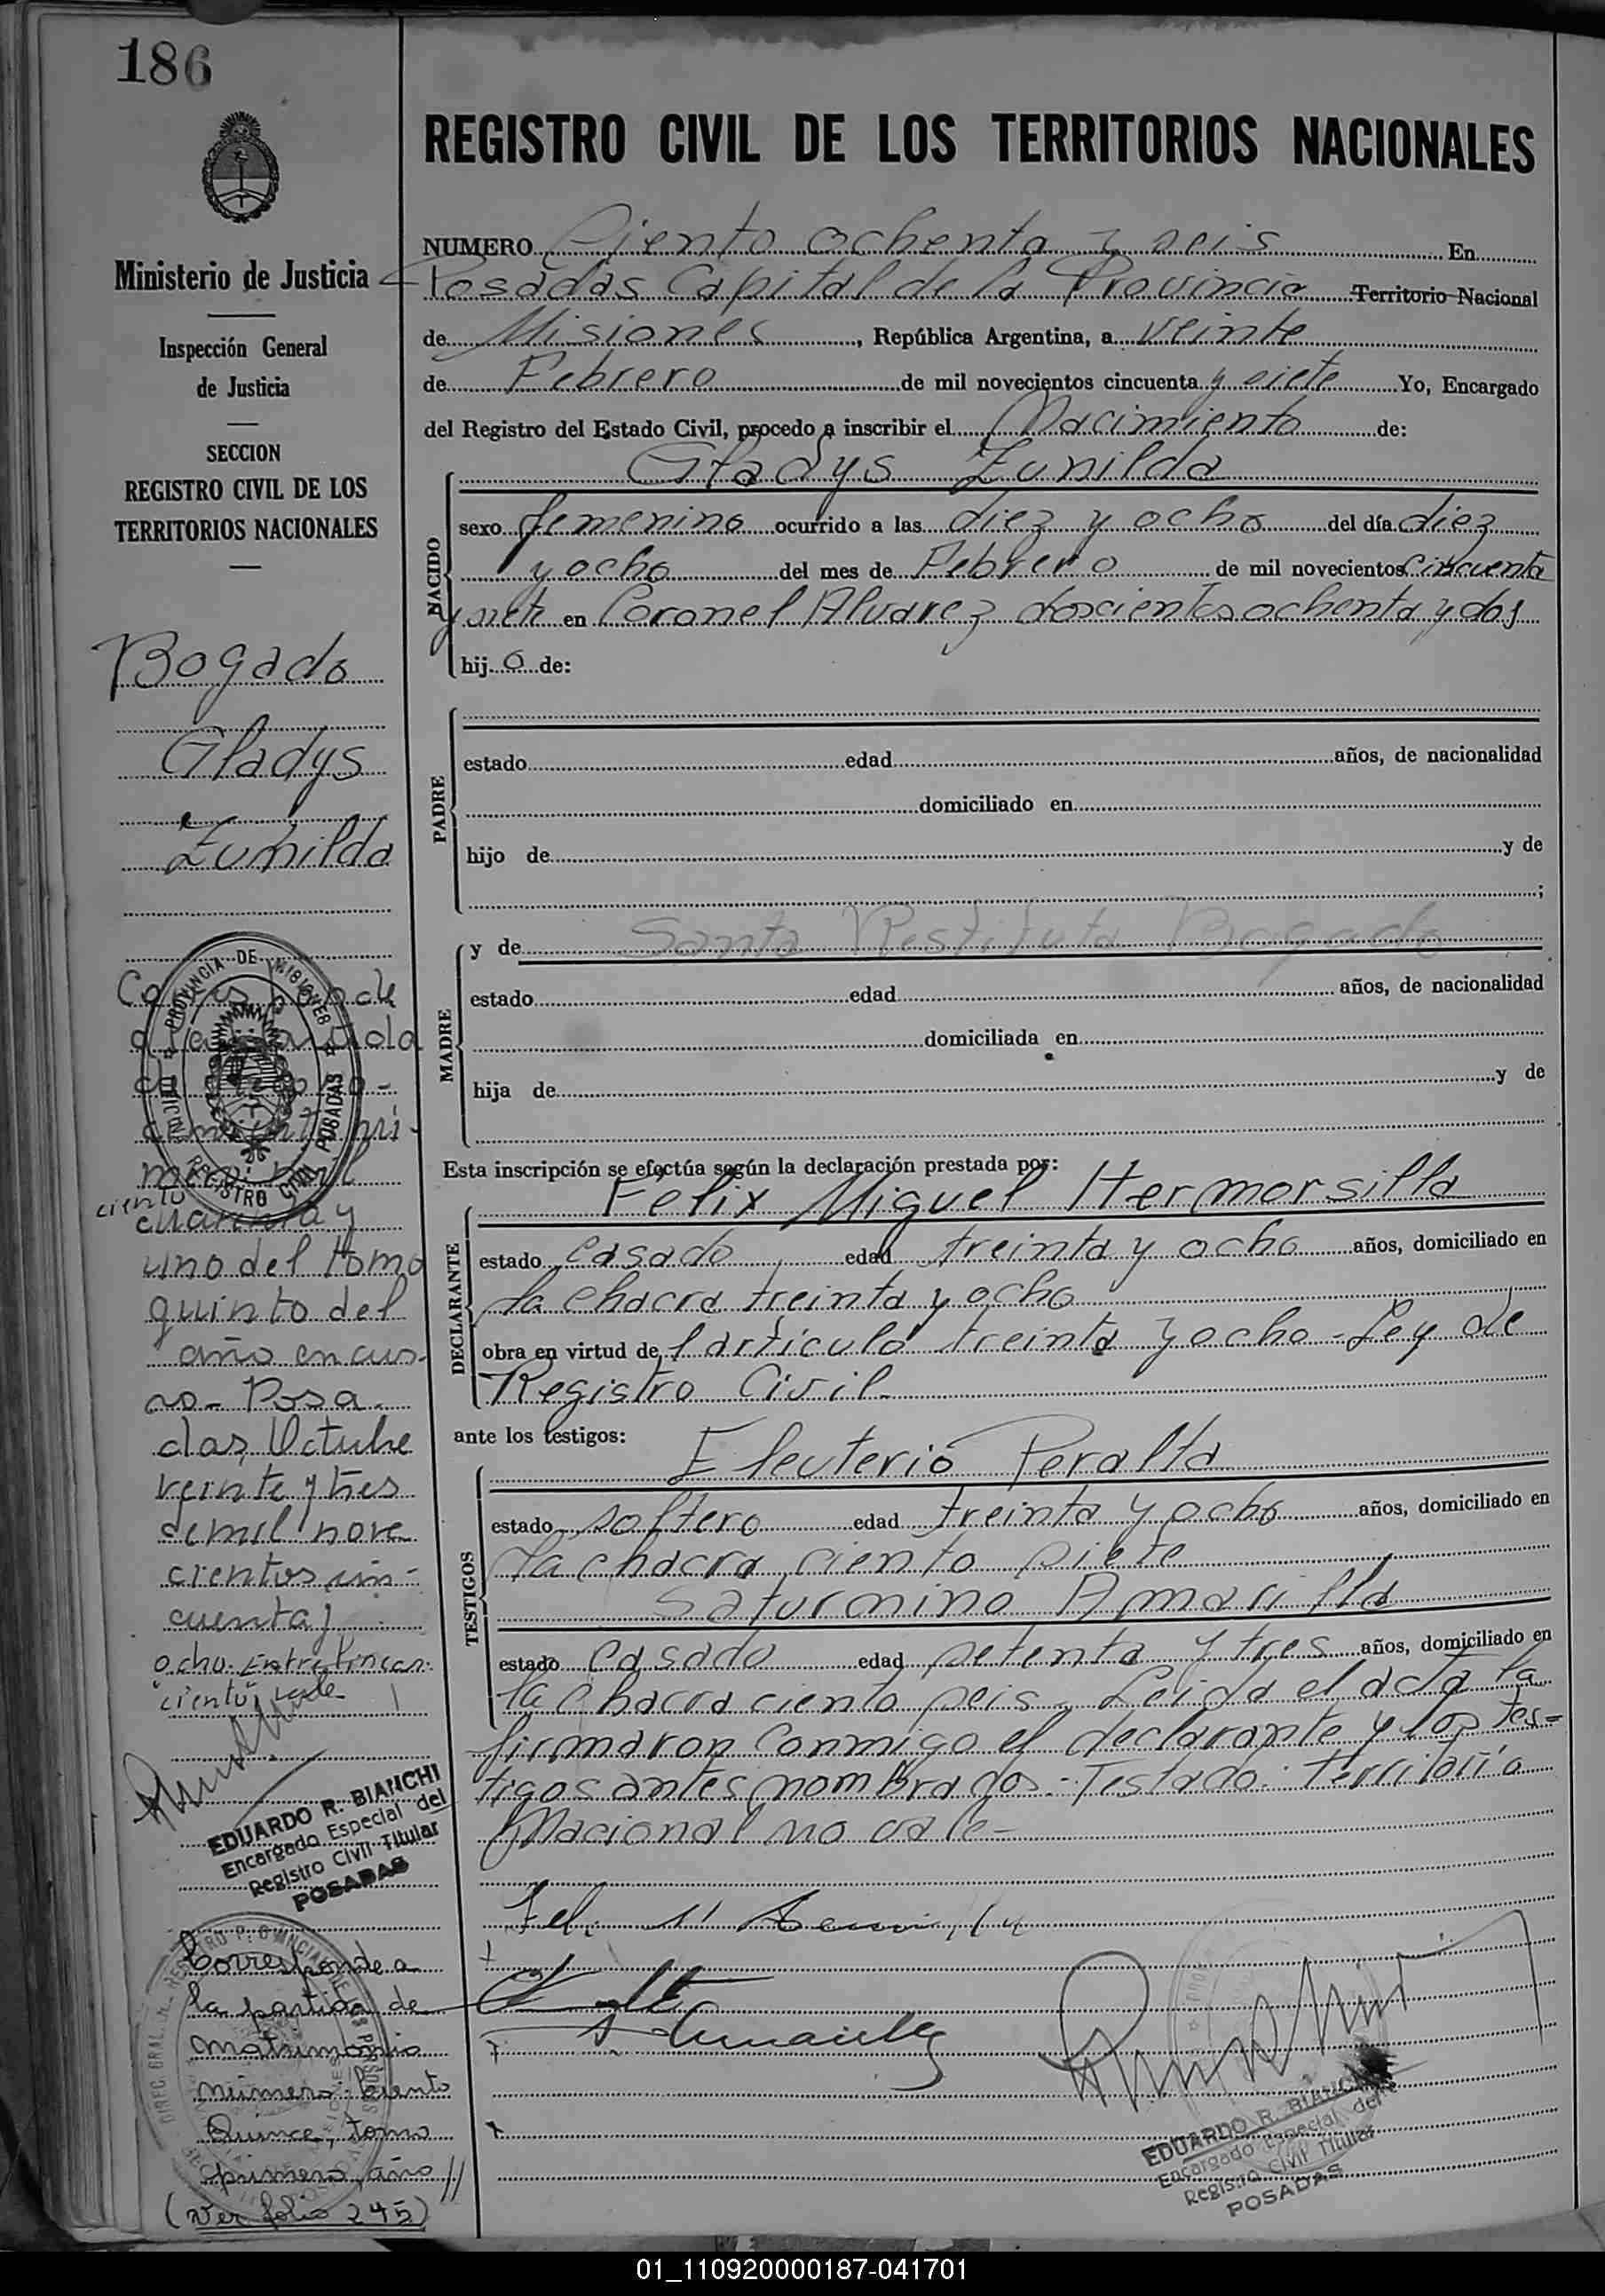 186
Ministerio de Justicia
Inspección General
de Justicia
SECCION
REGISTRO CIVIL DE LOS
TERRITORIOS NACIONALES
Bogado
Gladys
Zunilda
PROVINCIA DE MISIONES
REGISTRO CIVIL POSADAS
mero mil
ciento
cuarenta y
uno del tomo
quinto del
año en cur-
so - Posa-
das, Octubre
veinte y tres
de mil nove
cientos cin-
cuenta y
ocho. Entre lineas:
"ciento" vale
EDUARDO R. BIANCHI
Encargado Especial del
Registro Civil Titular
POSADAS
Corresponde a
la partida de
matrimonio
número: Ciento
Quince, tomo
primero, año //
(Ver folio 245)
REGISTRO CIVIL DE LOS TERRITORIOS NACIONALES
NUMERO Ciento ochenta y seis En
Posadas Capital de la Provincia Territorio Nacional
de Misiones, República Argentina, a veinte
de Febrero de mil novecientos cincuenta y siete Yo, Encargado
del Registro del Estado Civil, procedo a inscribir el Nacimiento de:
NACIDO
Gladys Zunilda
sexo femenino ocurrido a las diez y ocho del día diez
y ocho del mes de Febrero de mil novecientos cincuenta
y siete en Coronel Alvarez doscientos ochenta y dos
hij o de:
PADRE
estado edad años, de nacionalidad
domiciliado en
hijo de y de
;
MADRE
y de Santa Restituta Bogado
estado edad años, de nacionalidad
domiciliada en
hija de y de
Esta inscripción se efectúa según la declaración prestada por:
DECLARANTE
Felix Miguel Hermorsilla
estado Casado edad treinta y ocho años, domiciliado en
la chacra treinta y ocho
obra en virtud de l articulo treinta y ocho - Ley de
Registro Civil -
ante los testigos:
TESTIGOS
Eleuterio Peralta
estado soltero edad treinta y ocho años, domiciliado en
la chacra ciento siete
Saturnino Amarilla
estado Casado edad setenta y tres años, domiciliado en
la chacra ciento seis - Leida el acta la
firmaron conmigo el declarante y los tes=
tigos antes nombrados - Testado: territorio
Nacional no vale -
EDUARDO R. BIANCHI
Encargado Especial del
Registro Civil Titular
POSADAS
01_110920000187-041701